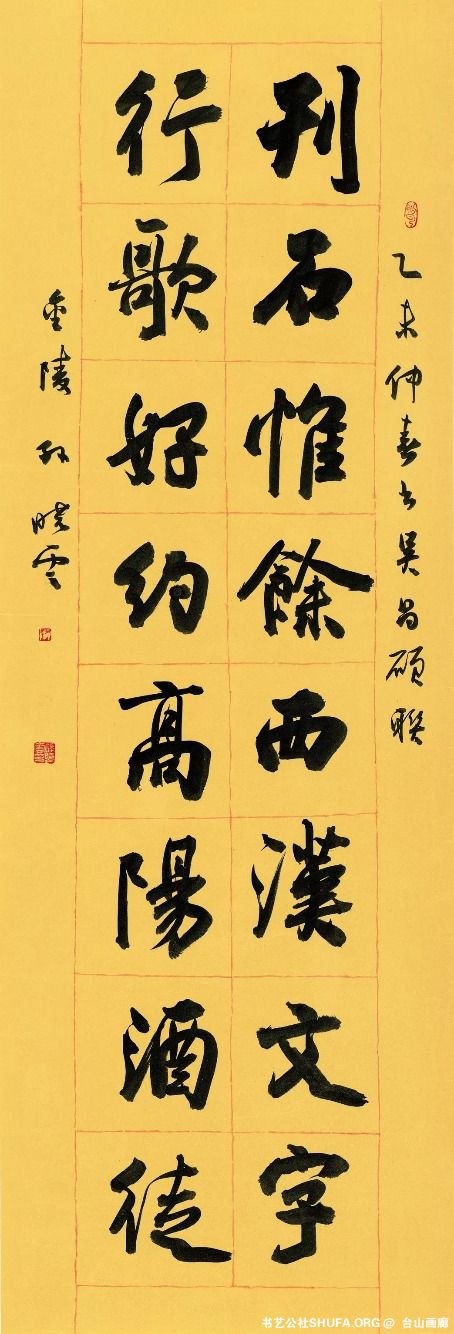 乙未仲春书吴昌硕联
刊石惟餘西漢文字
行歌好約高陽酒徒
金陵孙晓云
书艺公社SHUFA.ORG @ 台山画廊